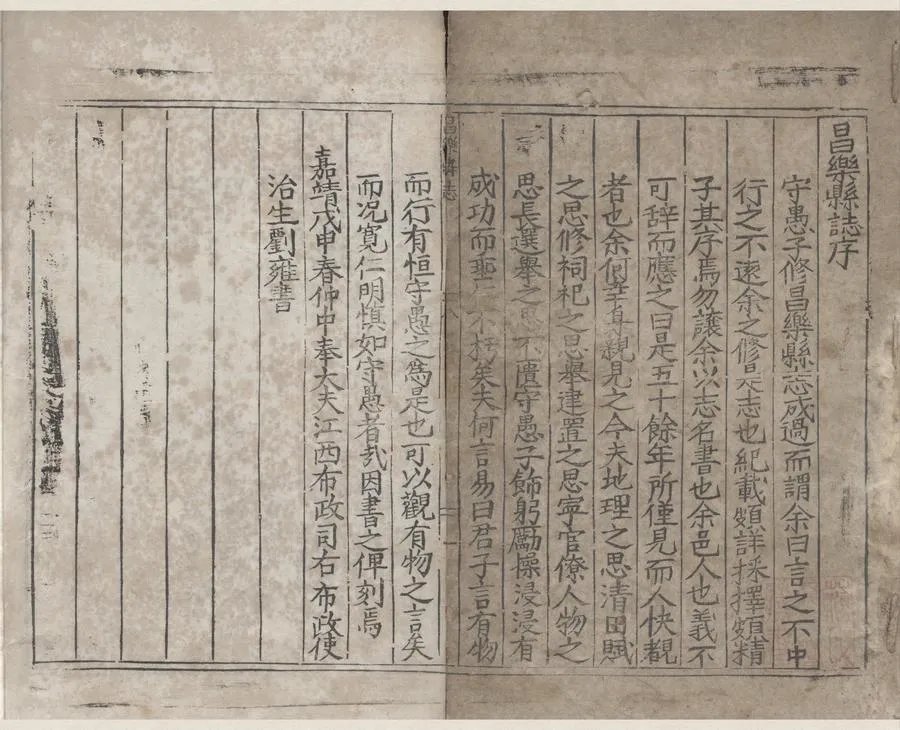 昌樂縣誌序
守愚子修昌樂縣志成過而謂余曰言之不中
行之不遠余之修是志也紀載頗詳採擇頗精
子其序焉勿讓余以志名書也余邑人也義不
可辞而應之曰是五十餘年所僅見而人快覩
者也余何幸身親見之今夫地理之思清田賦
之思修祠祀之思舉建置之思寧官僚人物之
思長選舉之思不匱守愚子飾躬勵操浸浸有
成功而聖 不朽矣夫何言易曰君子言有物
昌樂縣志
而行有恒守愚之為是也可以觀有物之言矣
而况寛仁明慎如守愚者哉因書之俾刻焉
嘉靖戊申春仲中奉大夫江西布政司右布政使
治生劉雍書